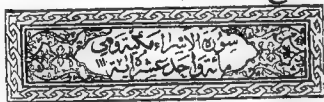 سورة الإسراء مكية وهي
مائة واحد عشر آية